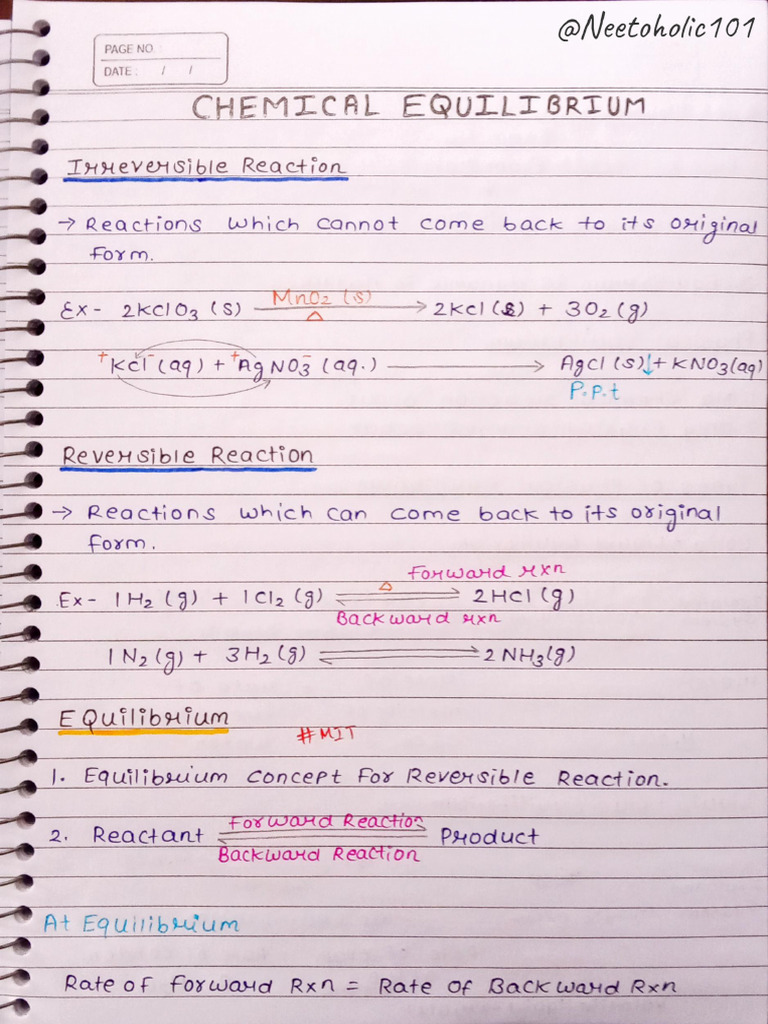 @Neetoholic101
PAGE NO.:
DATE: / /
CHEMICAL EQUILIBRIUM
Irreversible Reaction
→ Reactions which cannot come back to its original
form.
Ex- 2KClO3 (s) —MnO2 (s) Δ→ 2KCl (s) + 3O2 (g)
+KCl- (aq) + +AgNO3- (aq.) ⟶ AgCl (s)↓ + KNO3 (aq)
P.p.t
Reversible Reaction
→ Reactions which can come back to its original
form.
Forward rxn
Ex- 1H2 (g) + 1Cl2 (g) Δ ⇌ 2HCl (g)
Backward rxn
1N2 (g) + 3H2 (g) ⇌ 2NH3 (g)
EQuilibrium
#MIT
1. Equilibrium concept for Reversible Reaction.
Forward Reaction
2. Reactant ⇌ Product
Backward Reaction
At Equilibrium
Rate of forward Rxn = Rate of Backward Rxn